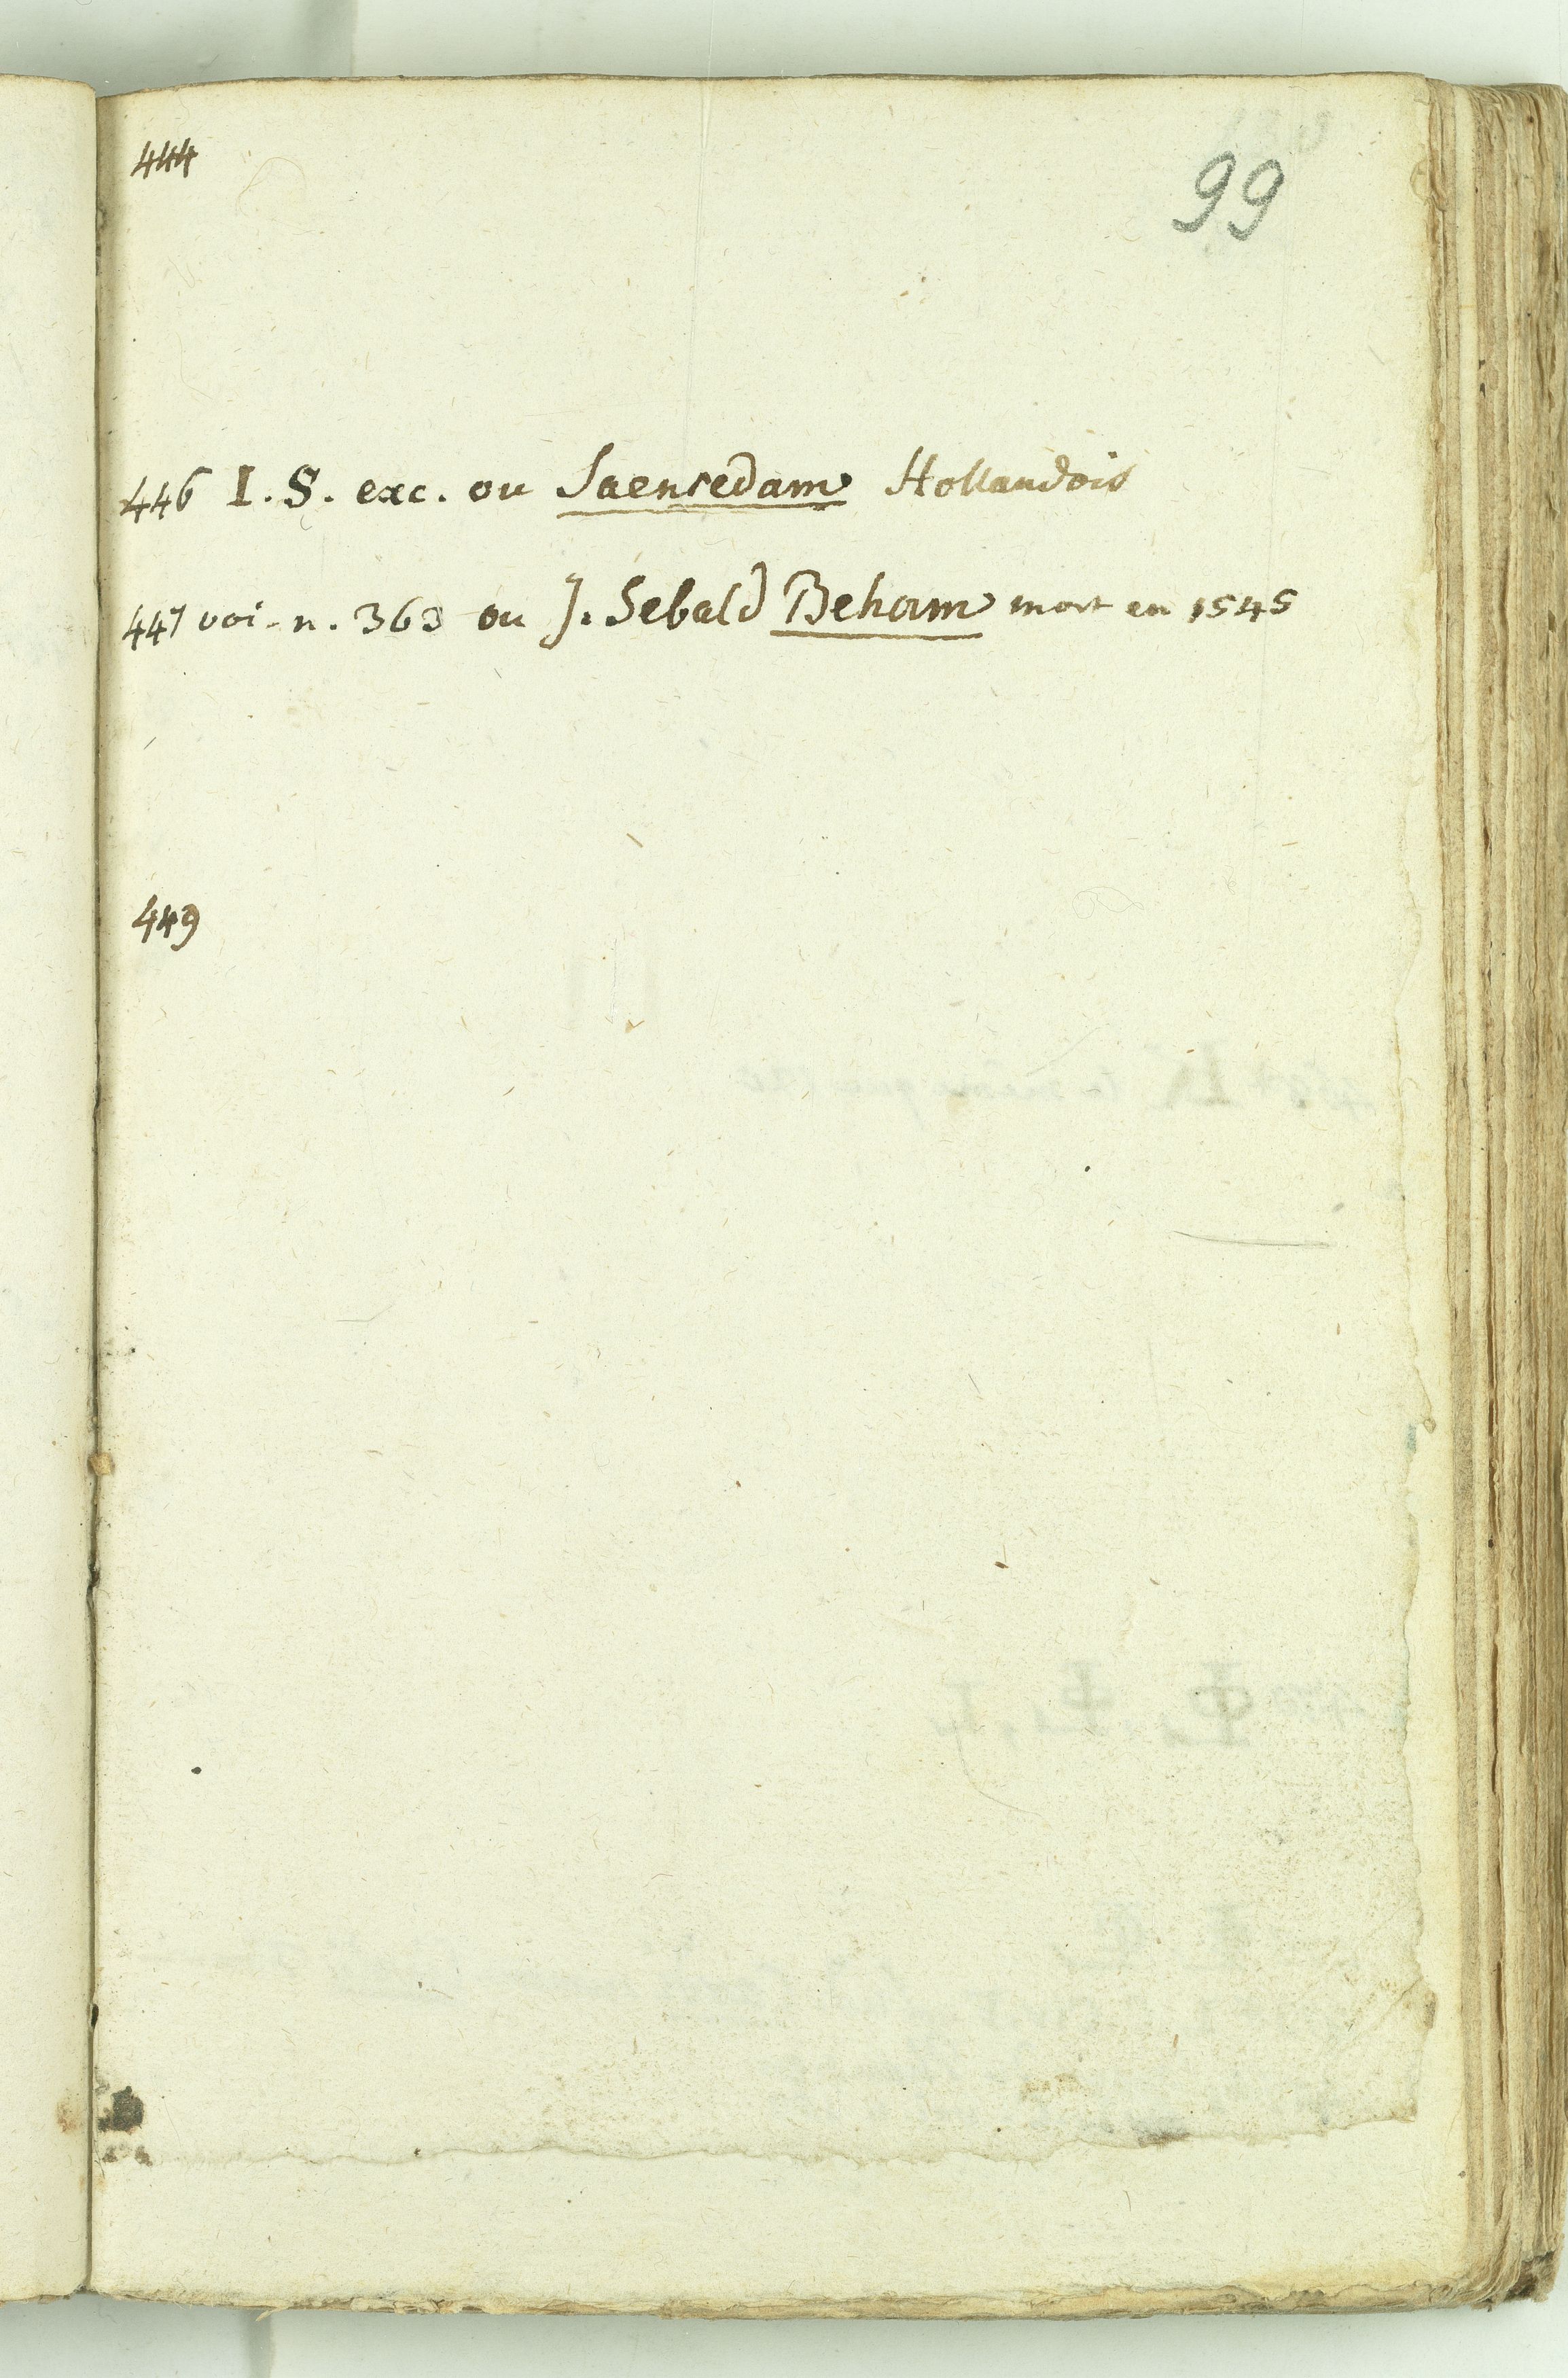 444
99
446 I. S. exc. ou Saenredam Hollandois
447 voi. n. 363 ou J. Sebald Beham mort en 1545
449